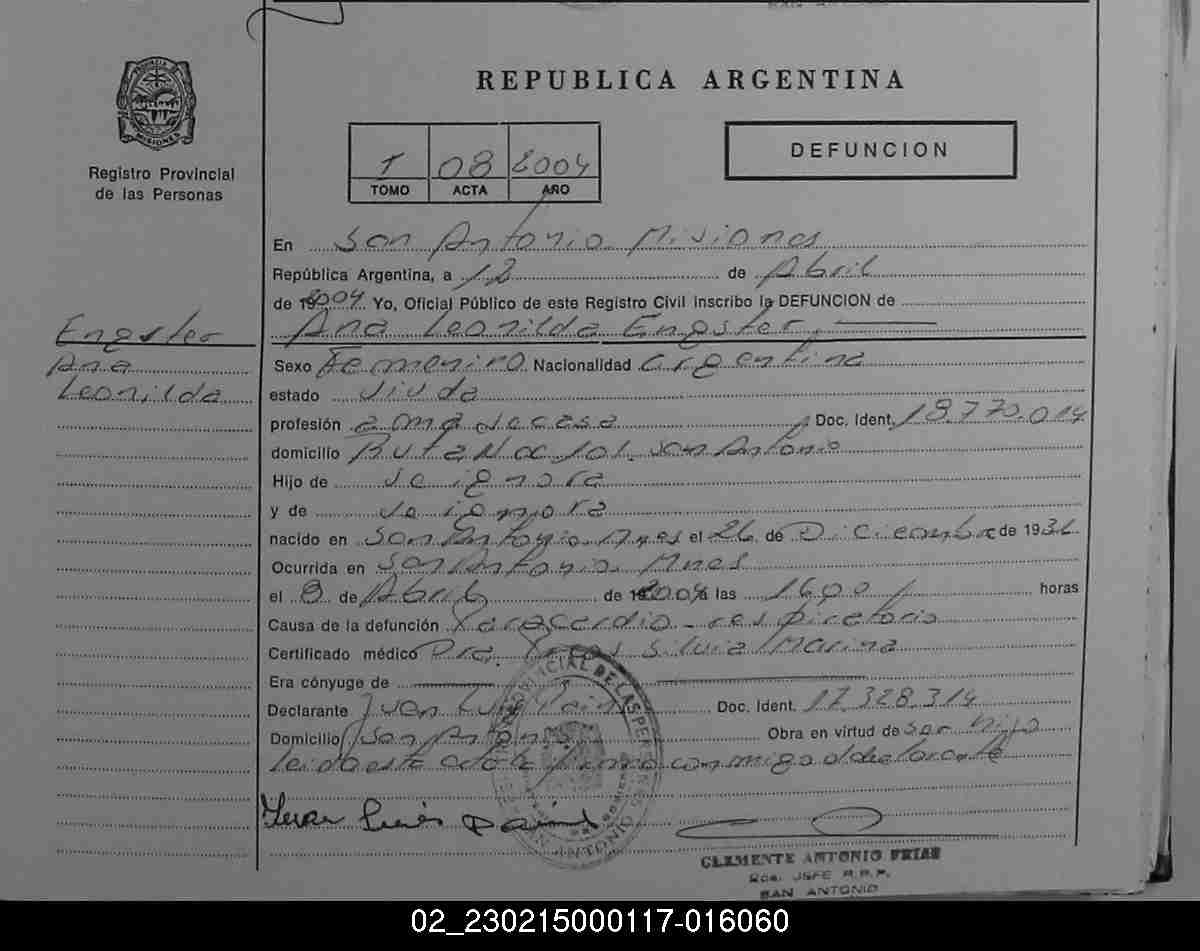 REPUBLICA ARGENTINA
PROVINCIA DE MISIONES
Registro Provincial
de las Personas
1 08 2004
TOMO ACTA AÑO
DEFUNCION
En San Antonio Misiones
República Argentina, a 12 de Abril
de 2004. Yo, Oficial Público de este Registro Civil inscribo la DEFUNCION de
Ana Leonilda Engster
Engster
Ana
Leonilda
Sexo Femenino Nacionalidad argentina
estado viuda
profesión ama de casa Doc. Ident. 18.770.014
domicilio Ruta Nac 101. San Antonio
Hijo de se ignora
y de se ignora
nacido en San Antonio Mnes el 26 de Diciembre de 1936
Ocurrida en San Antonio Mnes
el 8 de Abril de 2004 a las 1600 horas
Causa de la defunción Paro cardio-respiratorio
Certificado médico Dra. Silvia Marina
Era cónyuge de
Declarante Juan Luis Doc. Ident. 17.328.314
Domicilio San Antonio Obra en virtud de Ser Hijo
leida esta acta la firma conmigo el declarante
Juan Luis
PROVINCIAL DE LAS PERSONAS
SAN ANTONIO
CLEMENTE ANTONIO FRIAS
JEFE R.P.P.
SAN ANTONIO
02_230215000117-016060